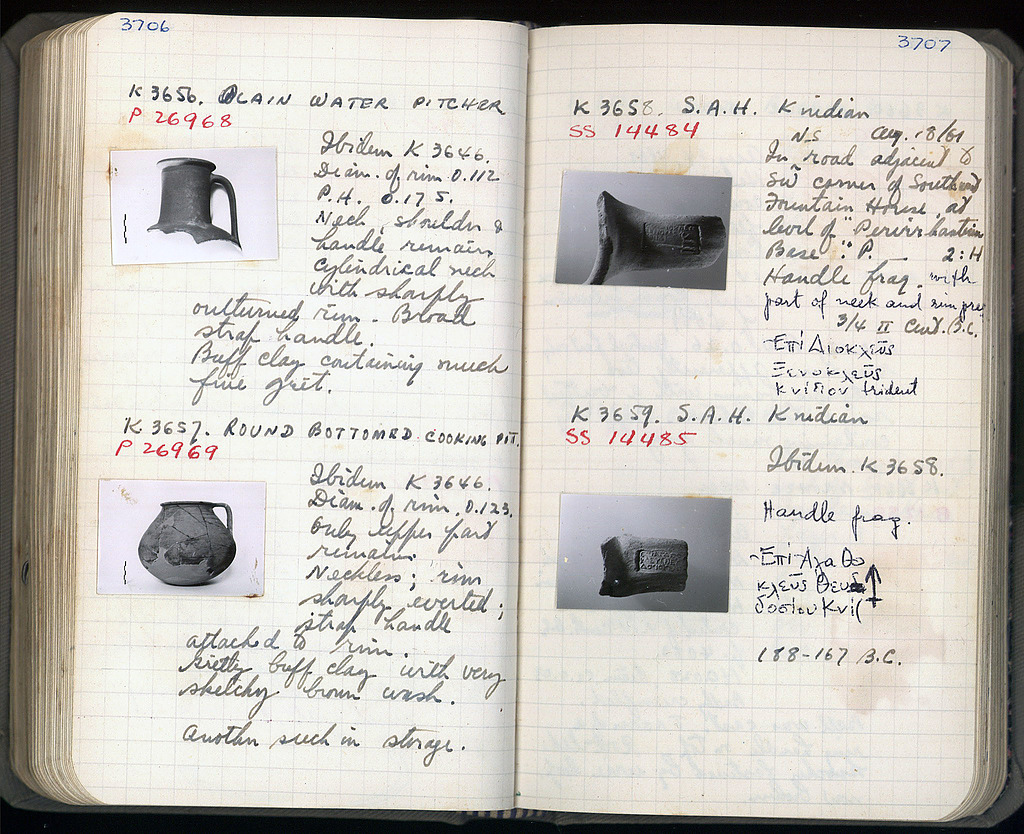 3706
K 3656. PLAIN WATER PITCHER
P 26968
Ibidem K 3646.
Diam. of rim 0.112
P.H. 0.175.
Neck, shoulder &
handle remain.
Cylindrical neck
with sharply
outturned rim. Broad
strap handle.
Buff clay containing much
fine grit.
K 3657. ROUND BOTTOMED COOKING POT.
P 26969
Ibidem K 3646.
Diam. of rim. 0.123.
Only upper part
remains.
Neckless; rim
sharply everted;
strap handle
attached to rim.
Gritty buff clay with very
sketchy brown wash.
Another such in storage.
3707
K 3658. S.A.H. Knidian
SS 14484
N.S Aug. 18/61
In road adjacent to
SW corner of Southwest
Fountain House, at
level of "
Base". P. 2:H
Handle frag. with
part of neck and rim pres
3/4 II Cent. B.C.
Ἐπὶ Διοκλεῦς
Ξενοκλεῦς
Κνίδιον trident
K 3659. S.A.H. Knidian
SS 14485
Ibidem. K 3658.
Handle frag.
Ἐπὶ Ἀγαθο
κλεῦς Θευ
δοσίου Κνί(
188-167 B.C.